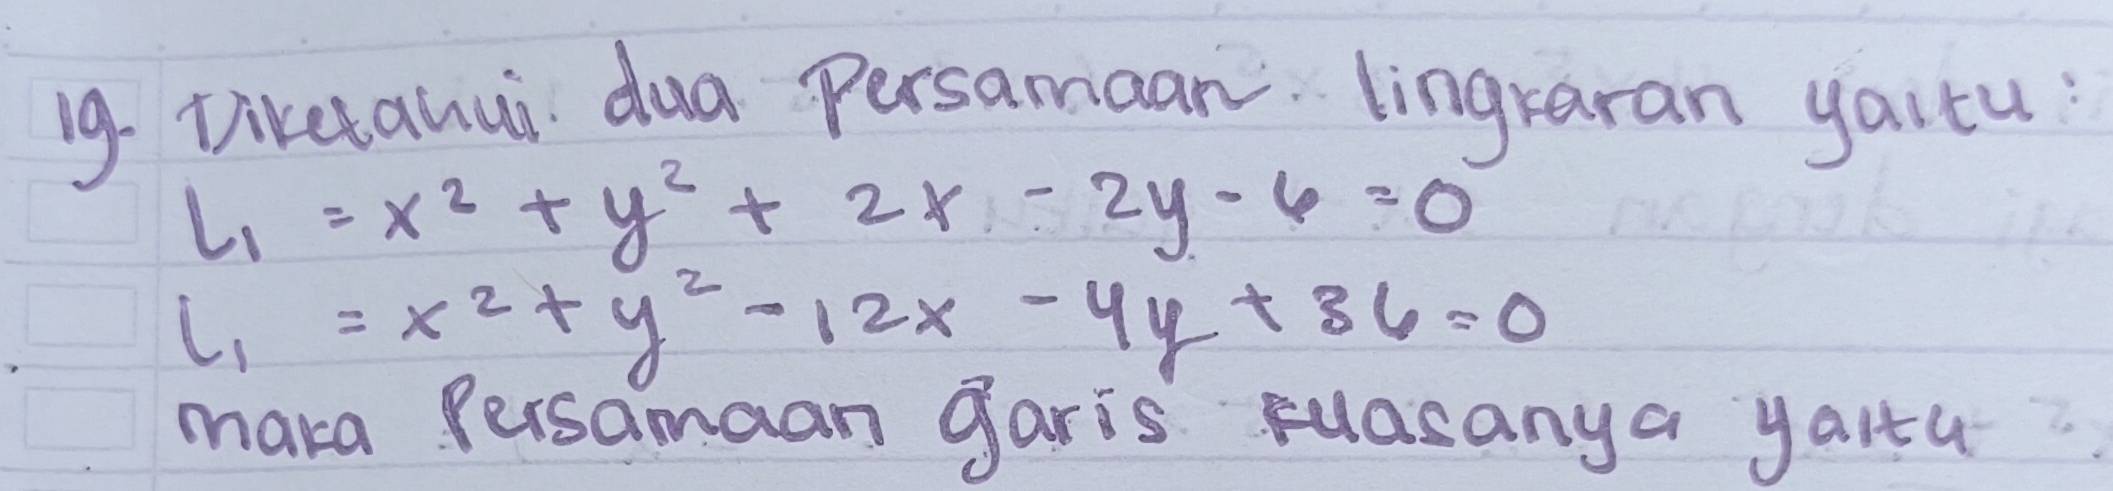 19. Diketahui dua Persamaan lingkaran yaitu:
L₁ = x² + y² + 2x - 2y - 6 = 0
L₁ = x² + y² - 12x - 4y + 36 = 0
maka Persamaan garis kuasanya yaitu